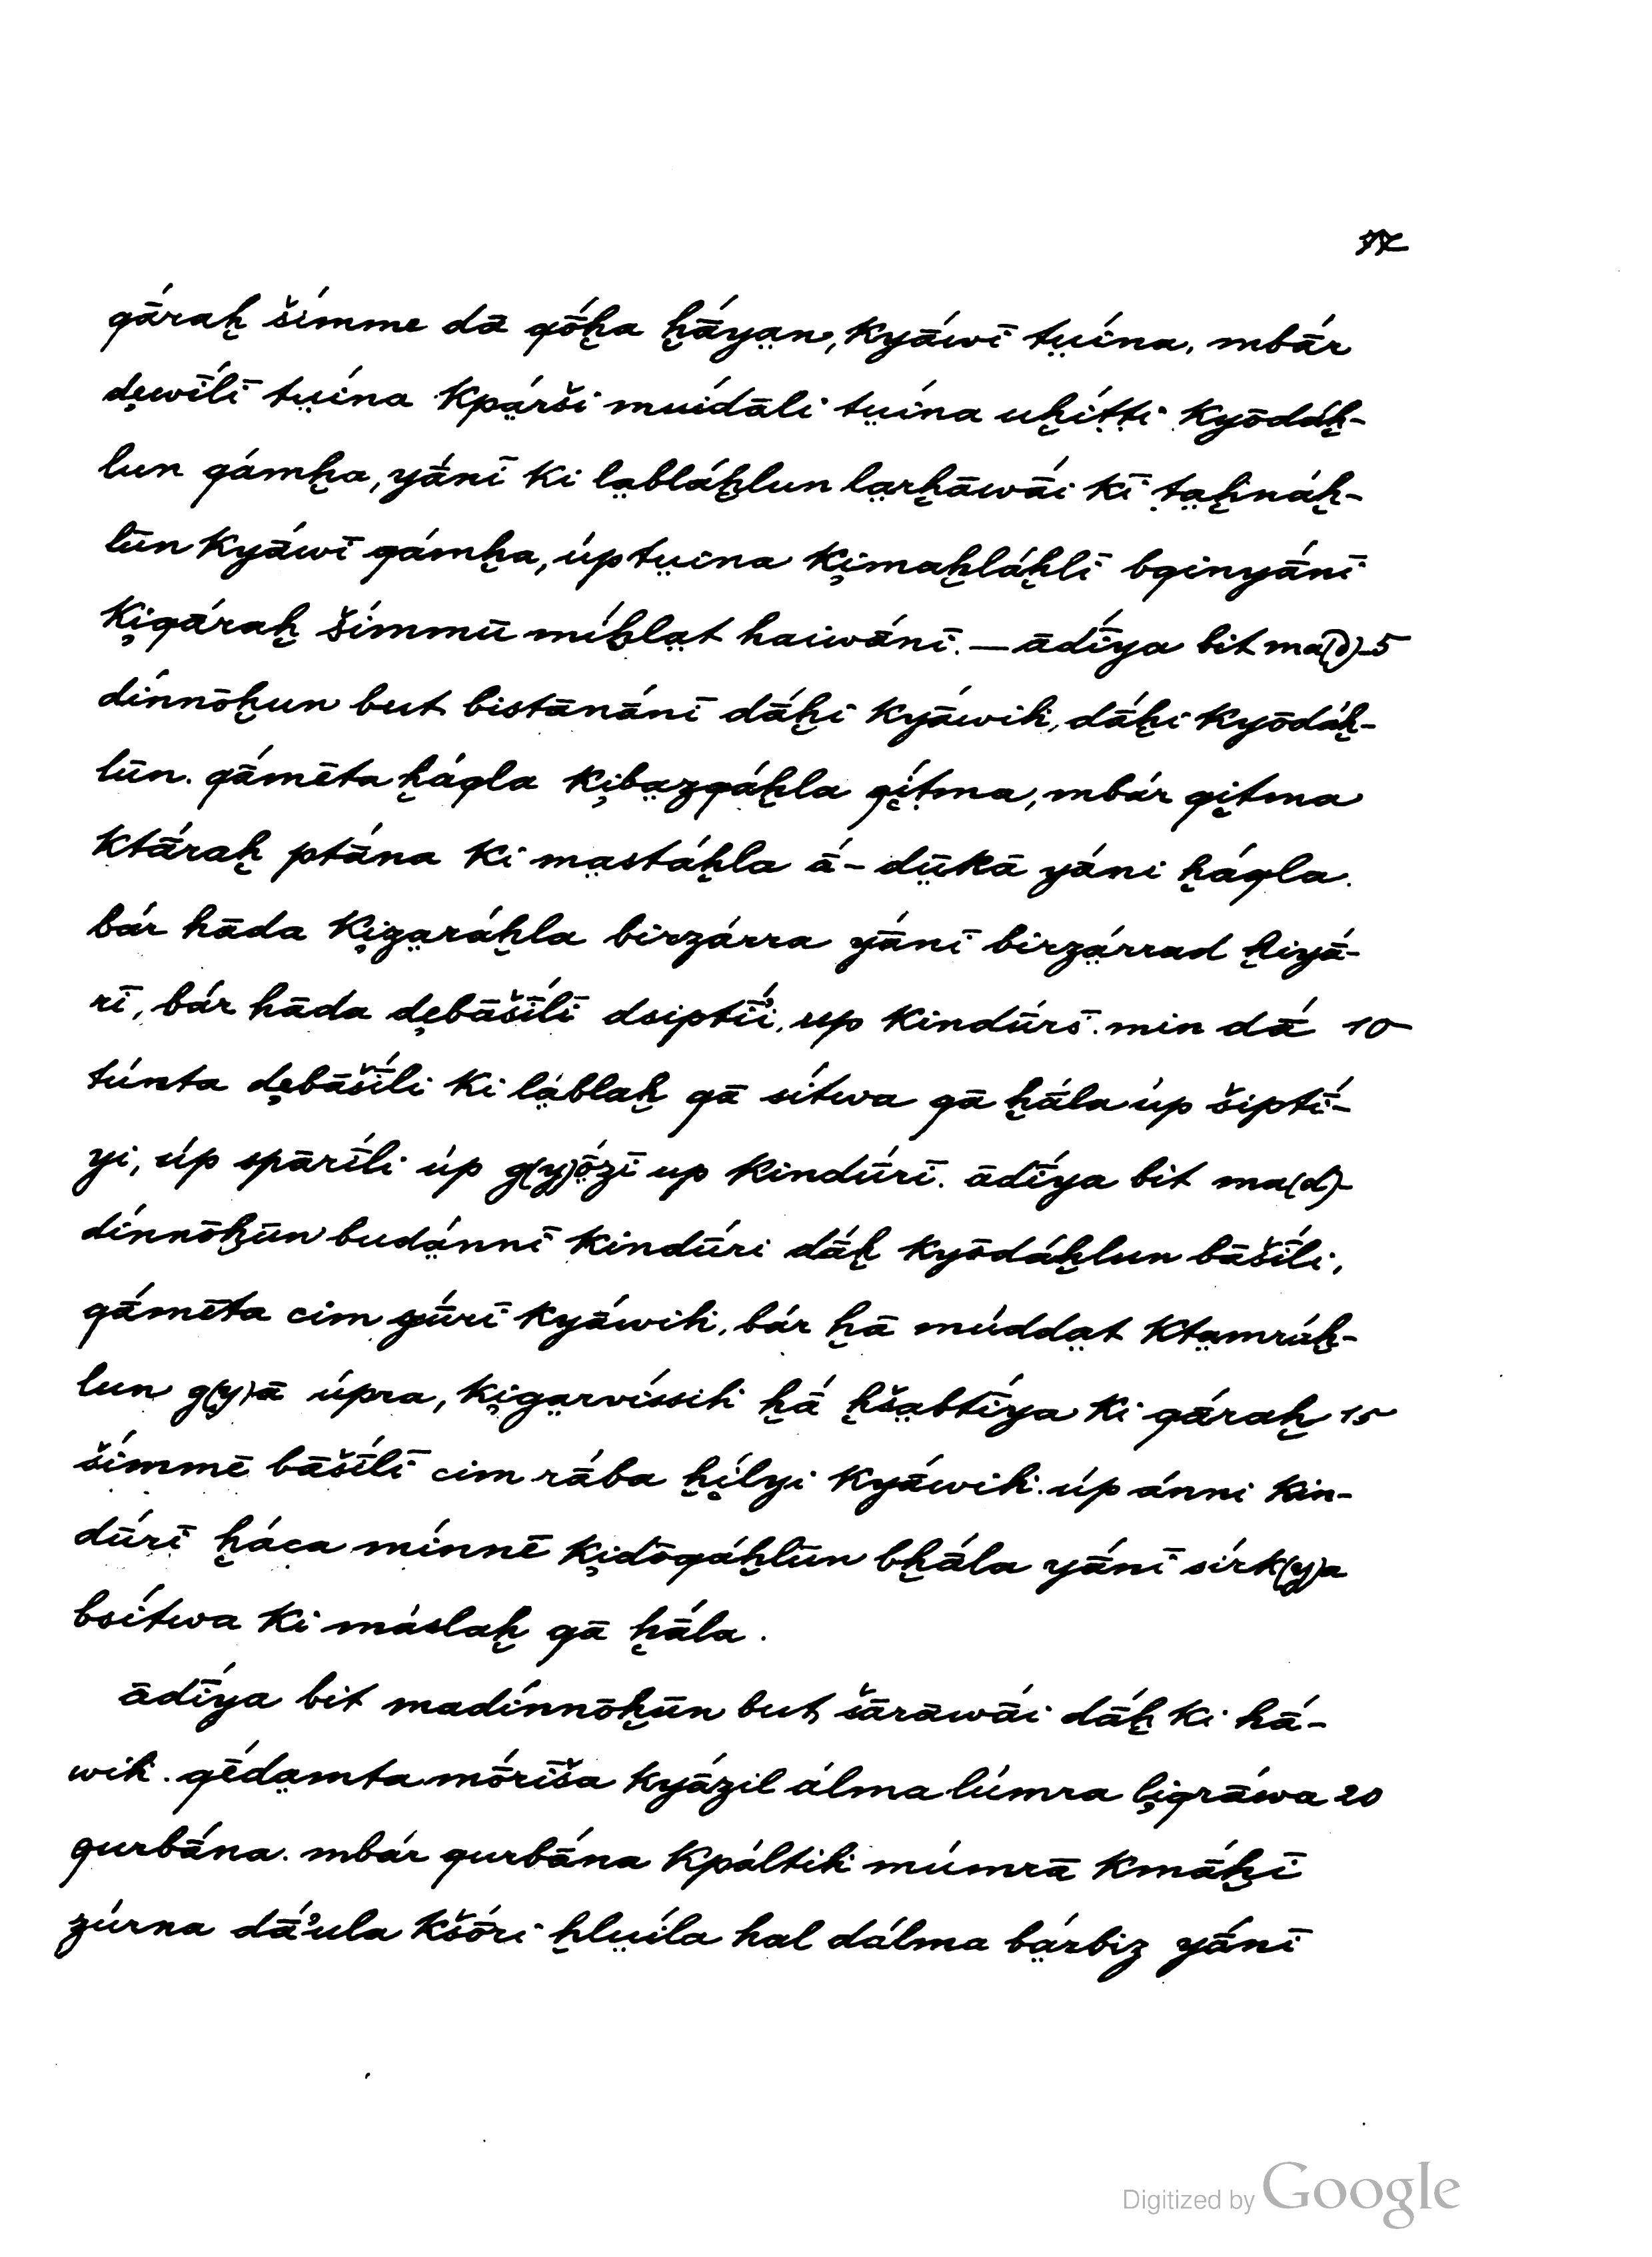 qā́raḫ šímme dā qṓḫa ḫā́ya̤n, kyā́wī tṳína, mbár
de̜wī́lī tṳína kpá̤rši muídāli tṳína uḫíṭṭi kyōdáḫ-
lun qámḫa, yā́nī ki la̤bláḫlun la̤rḫāwā́i kī ṭa̤ḫnáḫ-
lūn kyā́wī qámḫa, úptṳina ki̜maḫláḫlī bqinyā́nī
ki̜qā́raḫ šímmū míḫla̤t haiwā́nī. — ādī́ya bit ma(d)- 5
dínnōḫun but bistānā́nī dā́ḫi kyā́wih, dā́ḫi kyōdáḫ-
lūn. qā́mēta ḫáqla ki̜ba̤zqáḫla qíṭma, mbár qiṭma
ktā́raḫ ptā́na ki ma̤stáḫla ā́-dṳ̄kā yā́ni ḫáqla.
bár hāda ki̜za̤ráḫla birzárra yā́nī birzá̤rrad ḫiyā́-
rī, bár hāda de̜bāšī́lī dsiptī́i, up kindū́rī. min dā́ 10
túnta de̜bāšī́li ki lá̤blaḫ qā sítwa qā ḫā́la úp šiptī́-
yi, úp spārī́li úp g(y)ṓ̤zī up kindū́rī. ādī́ya bit ma(d)-
dínnōḫūn budá̤nnī kindū́ri dā́ḫ kyōdáḫlun bāšī́li,
qā́mēta cim gū́rī kyā́wih, bár ḫā múdda̤t kta̤mráḫ-
lun g(y)ā úpra, ki̜ga̤rvíssih ḫā́ ḫša̤btī́ya ki qā́raḫ 15
šímmē bāšī́lī cim rā́ba ḫílyi kyā́wih. úp ánni kin-
dū́rī ḫáca mínnē ki̜dōqáḫlūn bḫā́la yā́nī sírk(y)a
bsítwa ki máslaḫ qā ḫā́la.
ādī́ya bit madínnōḫūn but šārāwā́i dā́ḫ ki hā́-
wih. qḗda̤mta mṓrīša kyā́zil álma lúmra li̜qrā́wa 20
qurbā́na. mbár qurbā́na kpáltih múmrā kmā́ḫī
zúrna dā́ʾula kšṓri ḫlṳíla hal dálma bá̤rbiz yā́nī
Digitized by Google